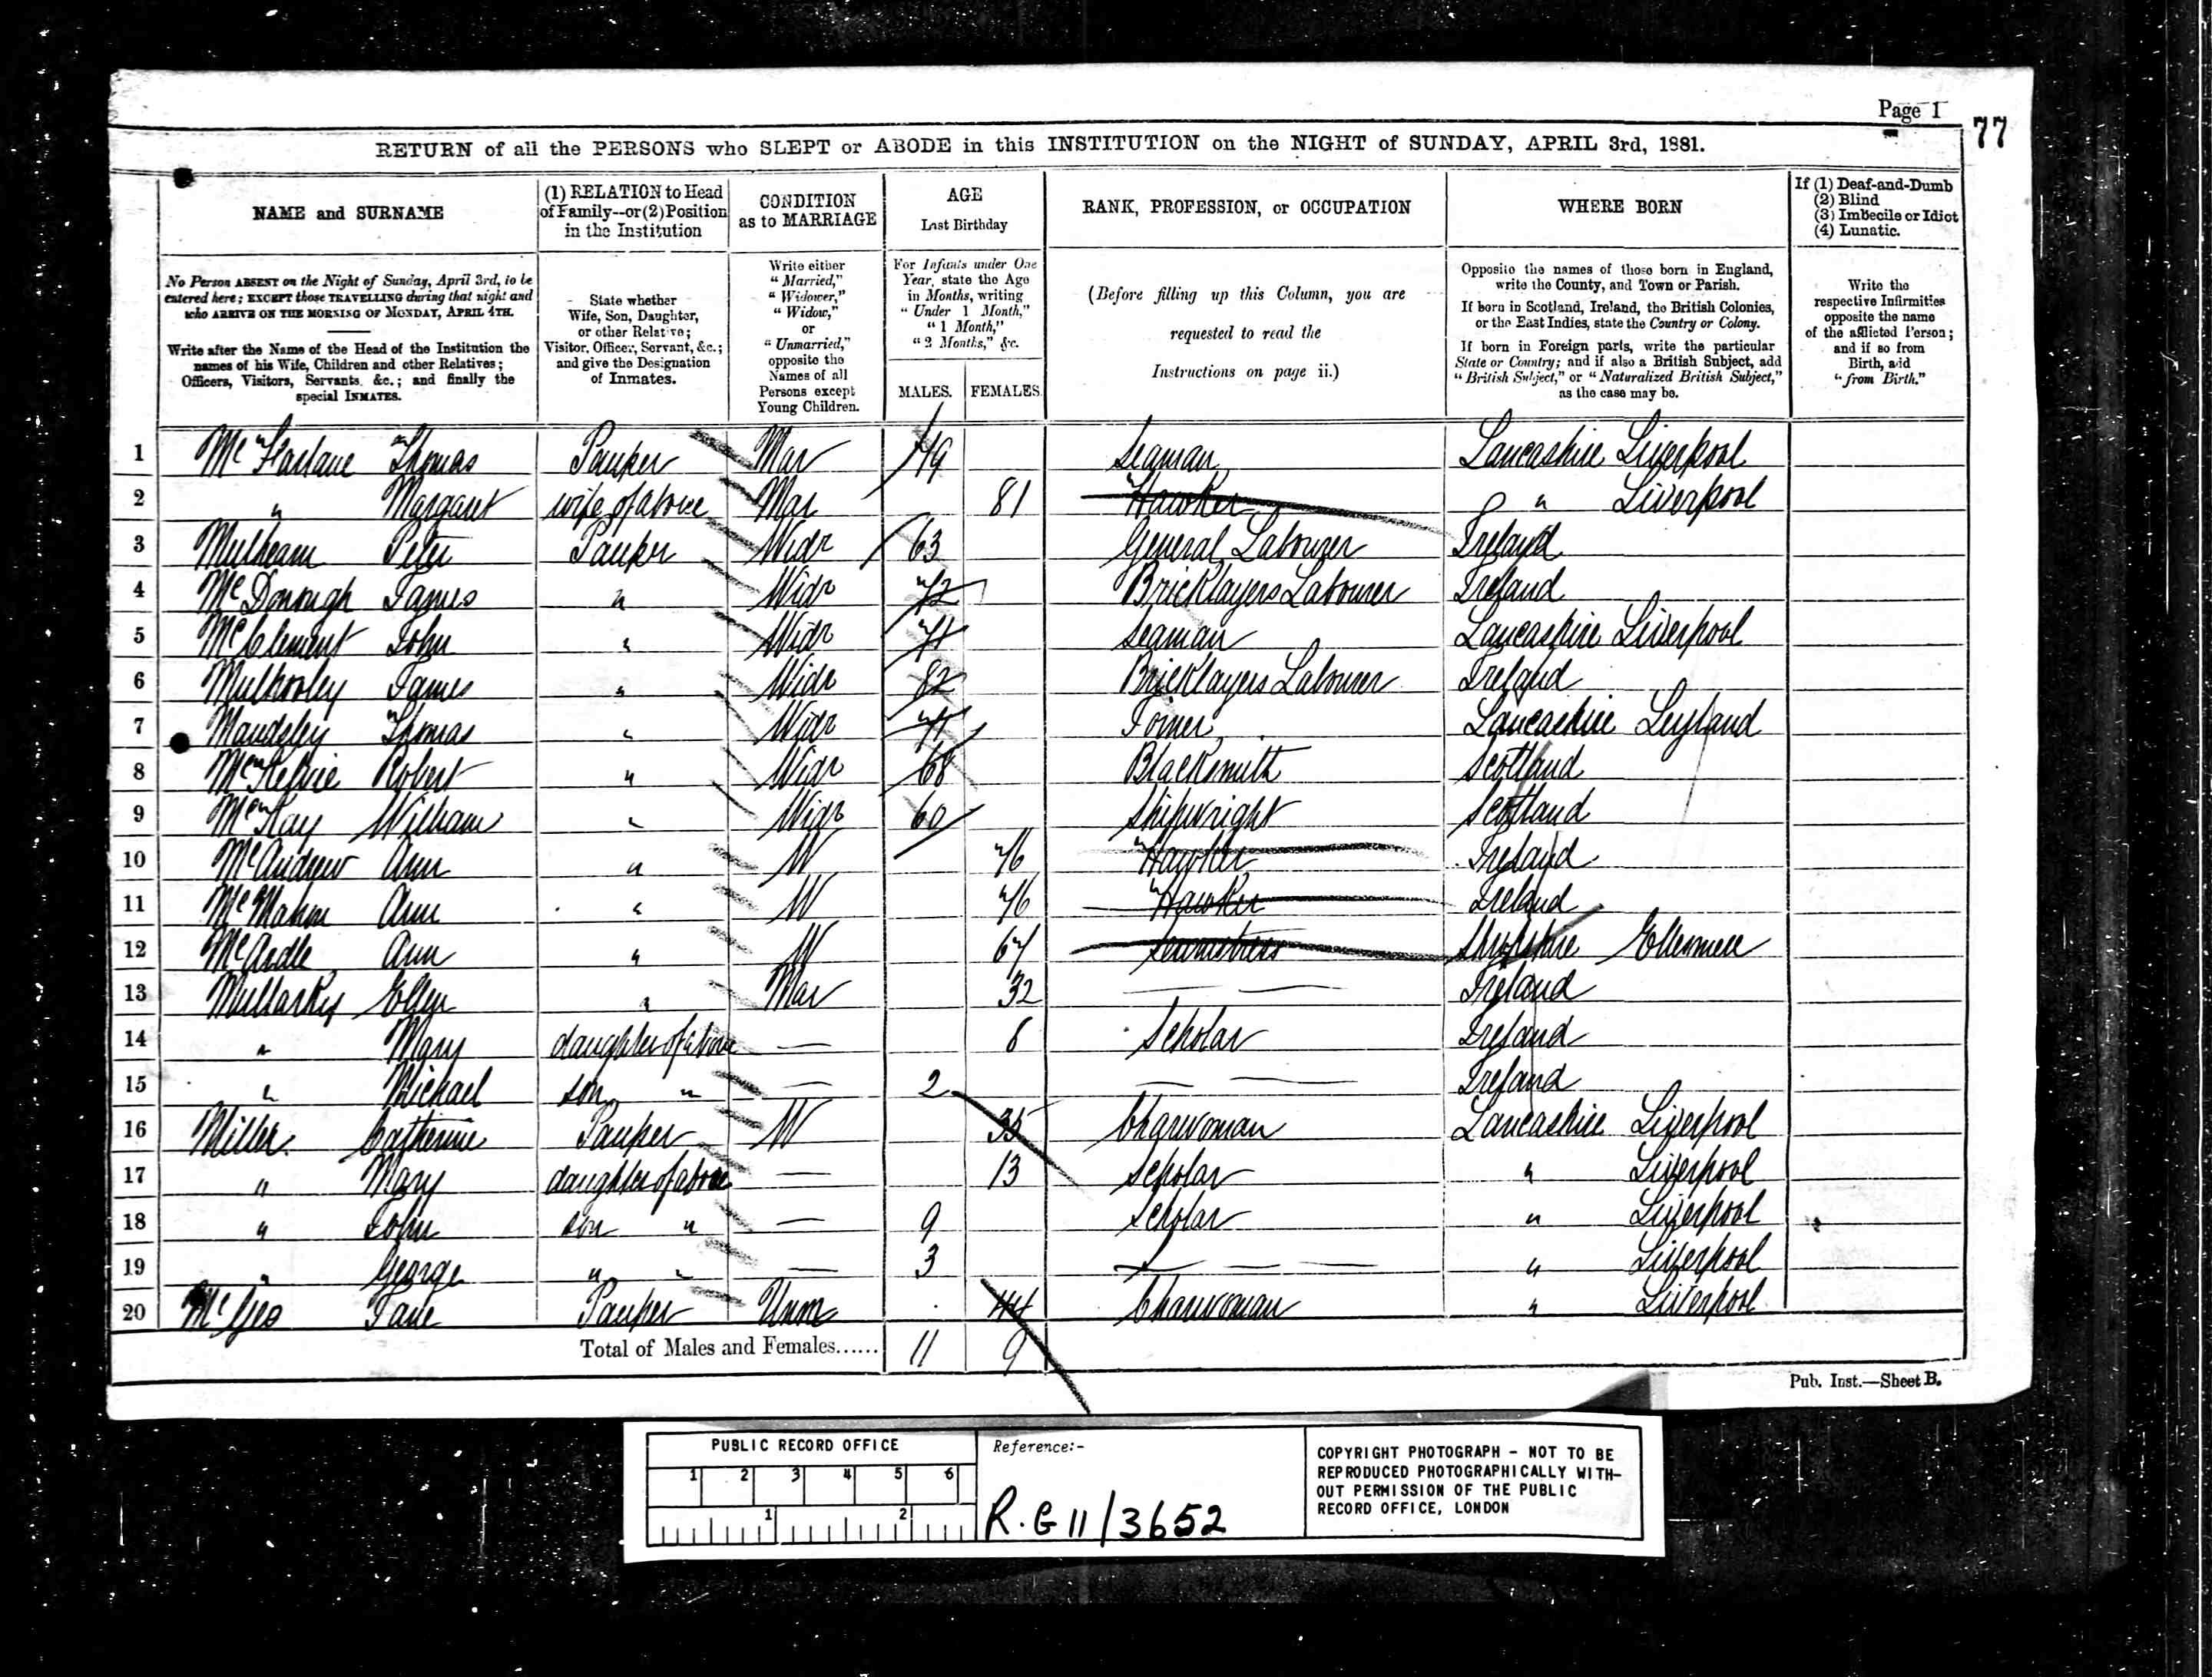 Page 1
77
RETURN of all the PERSONS who SLEPT or ABODE in this INSTITUTION on the NIGHT of SUNDAY, APRIL 3rd, 1881.
NAME and SURNAME
(1) RELATION to Head of Family--or (2) Position in the Institution
CONDITION as to MARRIAGE
AGE Last Birthday
RANK, PROFESSION, or OCCUPATION
WHERE BORN
If (1) Deaf-and-Dumb
(2) Blind
(3) Imbecile or Idiot
(4) Lunatic.
No Person ABSENT on the Night of Sunday, April 3rd, to be
entered here; EXCEPT those TRAVELLING during that night and
who ARRIVE ON THE MORNING OF MONDAY, APRIL 4TH.
Write after the Name of the Head of the Institution the
names of his Wife, Children and other Relatives;
Officers, Visitors, Servants, &c.; and finally the
special INMATES.
State whether
Wife, Son, Daughter,
or other Relative;
Visitor, Officer, Servant, &c.;
and give the Designation
of Inmates.
Write either
"Married,"
"Widower,"
"Widow,"
or
"Unmarried,"
opposite the
Names of all
Persons except
Young Children.
For Infants under One
Year, state the Age
in Months, writing
"Under 1 Month,"
"1 Month,"
"2 Months," &c.
MALES. FEMALES.
(Before filling up this Column, you are
requested to read the
Instructions on page ii.)
Opposite the names of those born in England,
write the County, and Town or Parish.
If born in Scotland, Ireland, the British Colonies,
or the East Indies, state the Country or Colony.
If born in Foreign parts, write the particular
State or Country; and if also a British Subject, add
"British Subject," or "Naturalized British Subject,"
as the case may be.
Write the
respective Infirmities
opposite the name
of the afflicted Person;
and if so from
Birth, add
"from Birth."
1 McFarlane Thomas Pauper Mar 79 Seaman Lancashire Liverpool
2 " Margaret wife of above Mar 81 Hawker " Liverpool
3 Mulheam Peter Pauper Widr 63 General Labourer Ireland
4 McDonough James " Widr 72 Bricklayers Labourer Ireland
5 McClement John " Widr 71 Seaman Lancashire Liverpool
6 Mulhooley James " Widr 82 Bricklayers Labourer Ireland
7 Maudsley Thomas " Widr 71 Joiner Lancashire Leyland
8 McKelvie Robert " Widr 68 Blacksmith Scotland
9 McKay William " Widr 60 Shipwright Scotland
10 McAndrew Ann " W 76 Hawker Ireland
11 McMahon Ann " W 76 Hawker Ireland
12 McArdle Ann " W 67 Seamstress Shropshire Ellesmere
13 Mullarkey Ellen " Mar 32 — — Ireland
14 " Mary daughter of above — 6 Scholar Ireland
15 " Michael son " — 2 — — Ireland
16 Miller Catherine Pauper W 35 Charwoman Lancashire Liverpool
17 " Mary daughter of above — 13 Scholar " Liverpool
18 " John son " — 9 Scholar " Liverpool
19 " George " " — 3 — — — " Liverpool
20 McGeo Jane Pauper Unm 44 Charwoman " Liverpool
Total of Males and Females...... 11 9
Pub. Inst.—Sheet B.
PUBLIC RECORD OFFICE
1 2 3 4 5 6
1 2
Reference:-
R.G 11/3652
COPYRIGHT PHOTOGRAPH - NOT TO BE
REPRODUCED PHOTOGRAPHICALLY WITH-
OUT PERMISSION OF THE PUBLIC
RECORD OFFICE, LONDON